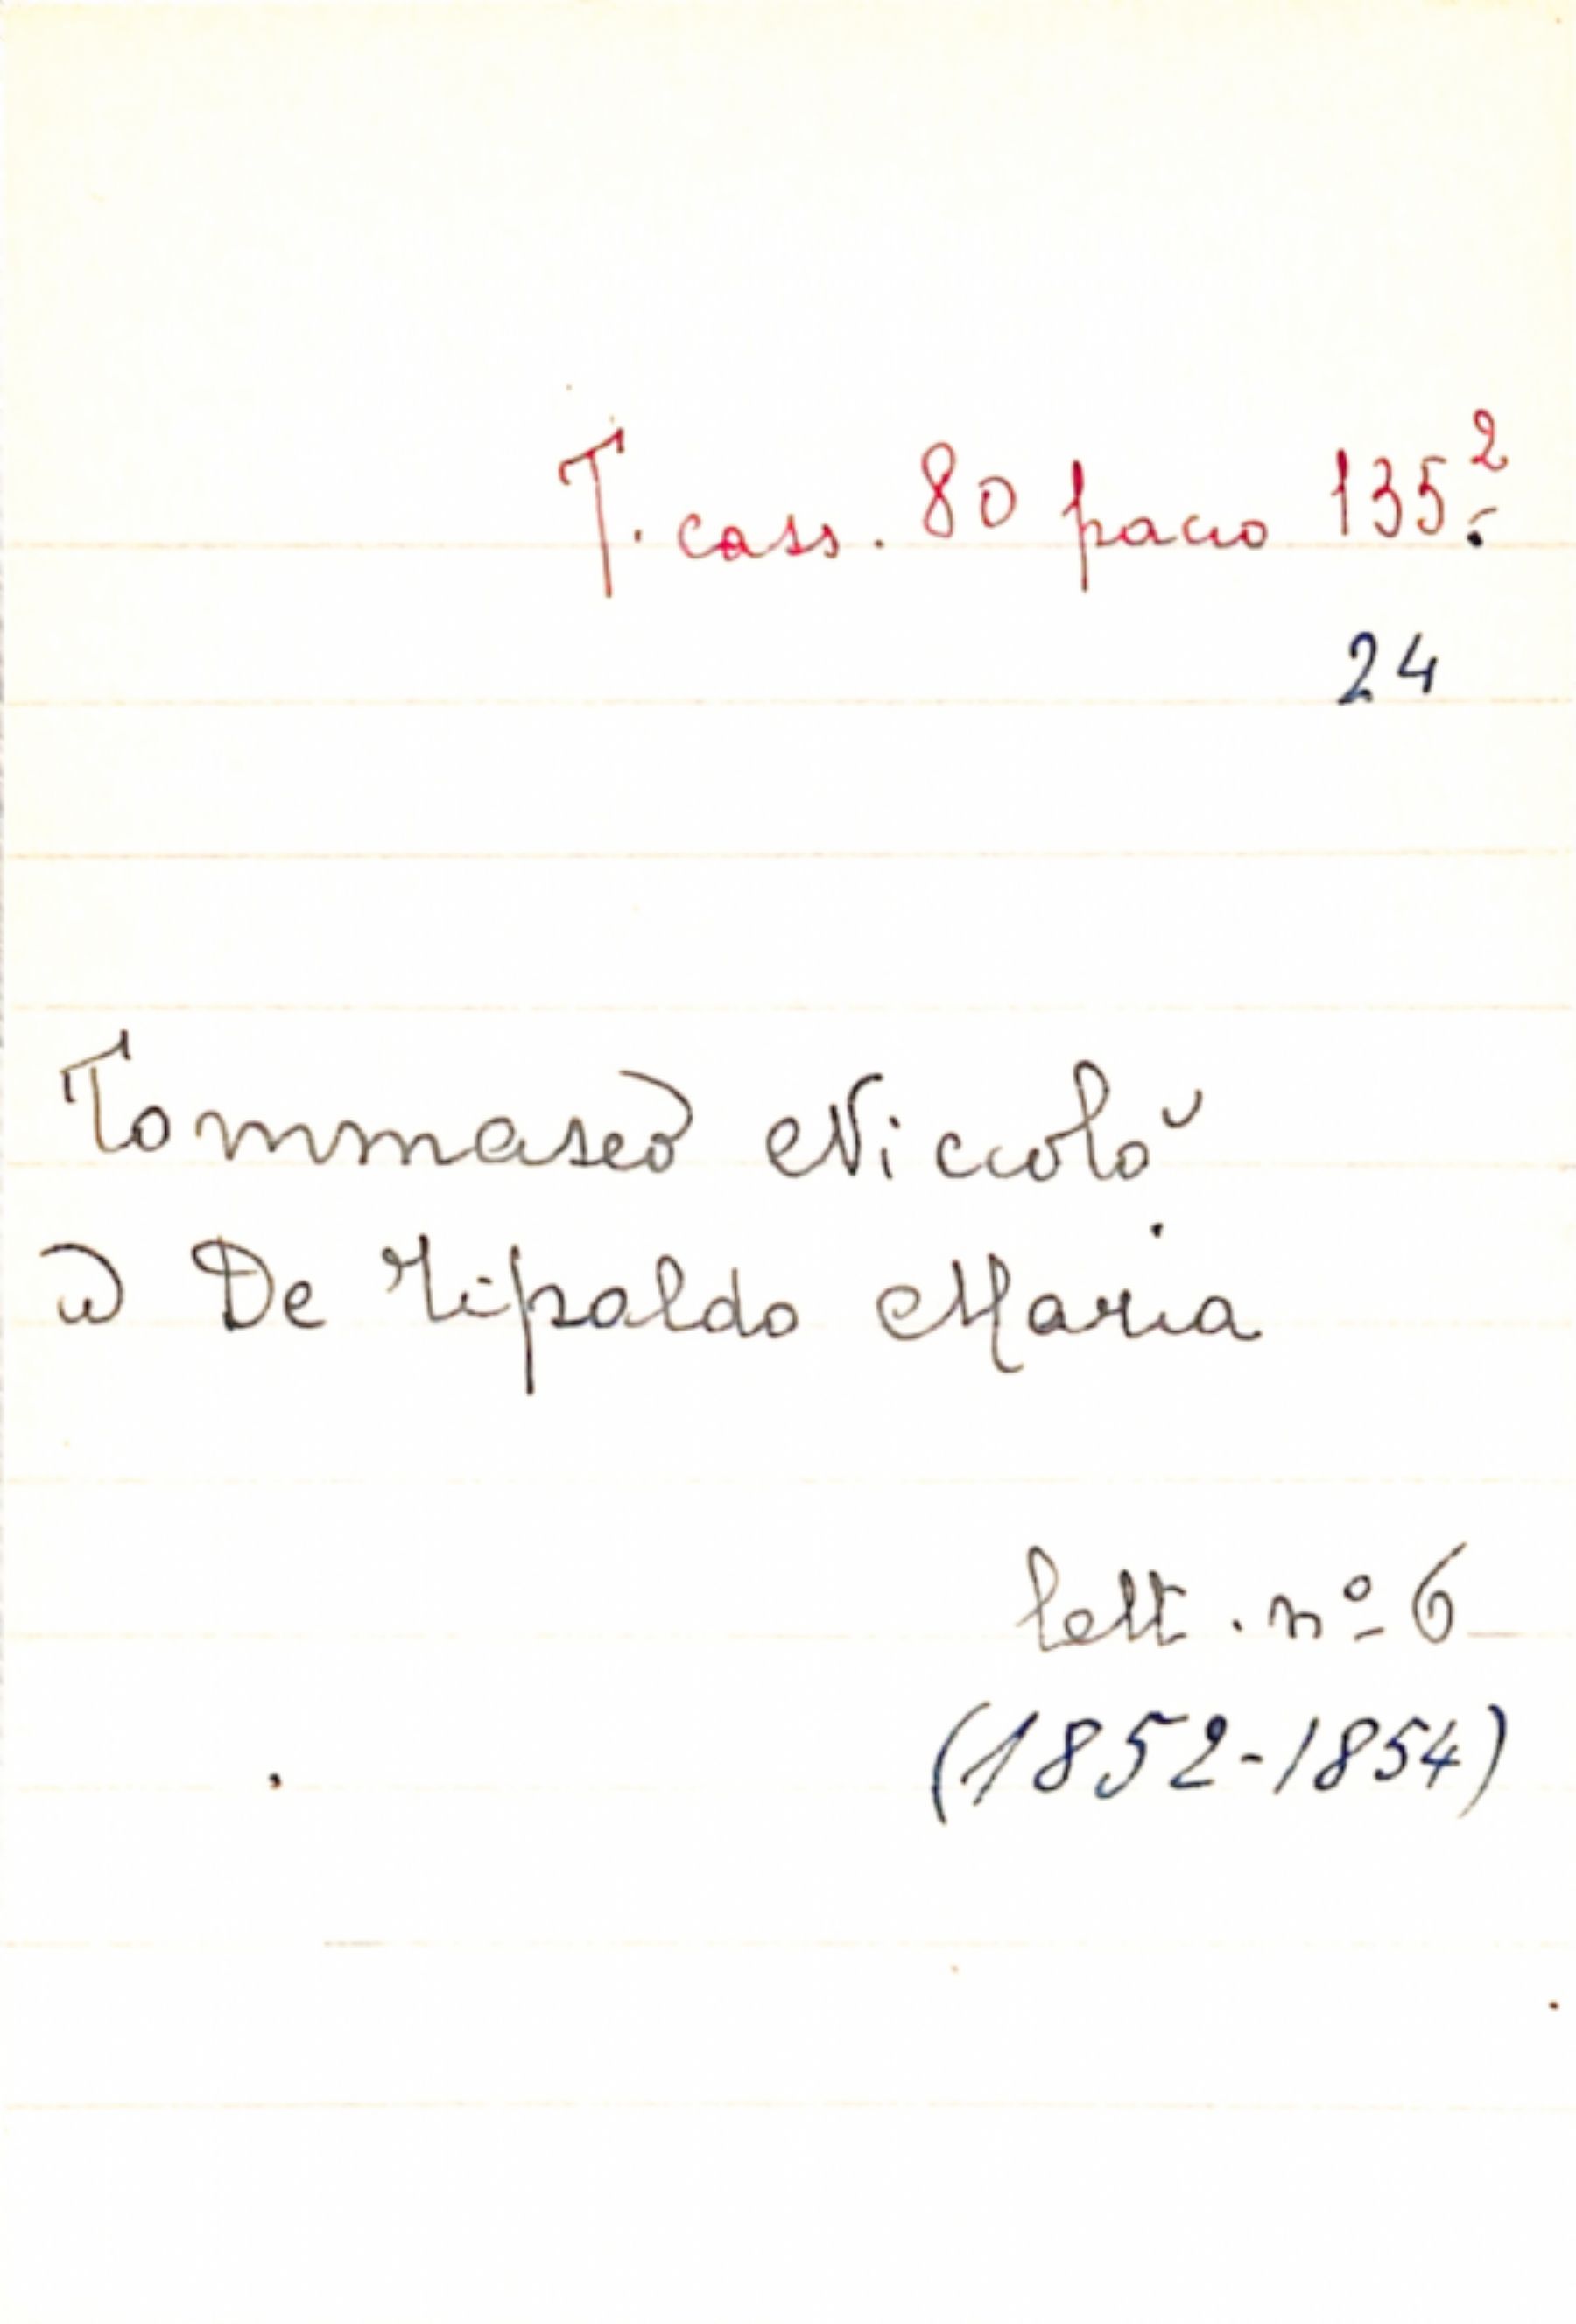 T. cass. 80 pacco 135.²
24
Tommaseo Niccolò
a De Tipaldo Maria
lett. nº 6
(1852-1854)